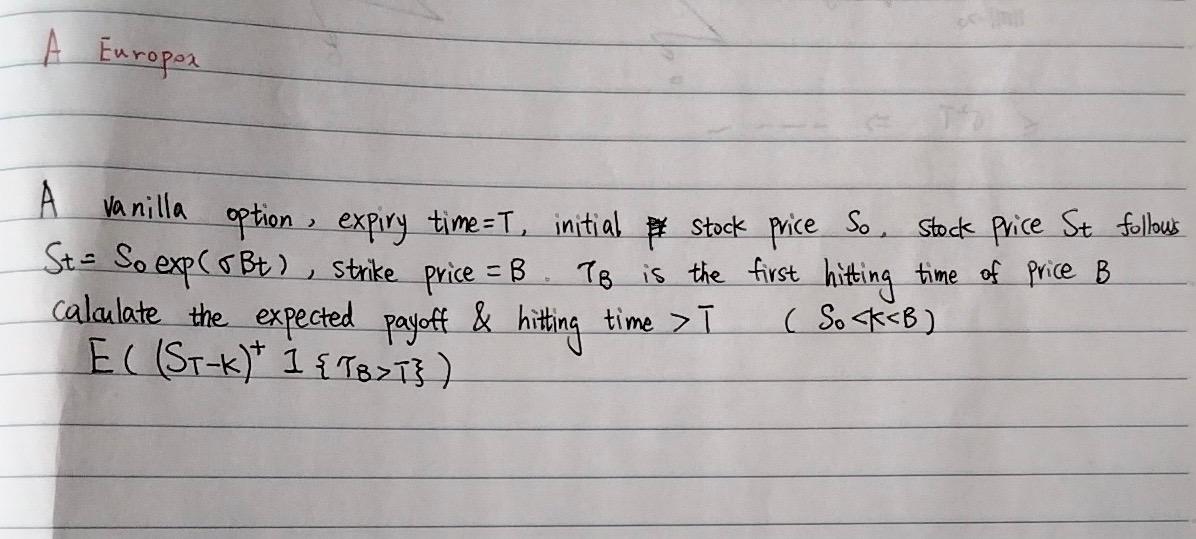 A Europoa
A vanilla option, expiry time=T, initial stock price S₀, stock price St follows
St = S₀ exp(σBt), strike price = B. τB is the first hitting time of price B
calculate the expected payoff & hitting time >T (S₀<K<B)
E( (ST-K)⁺ 1 {τB>T} )